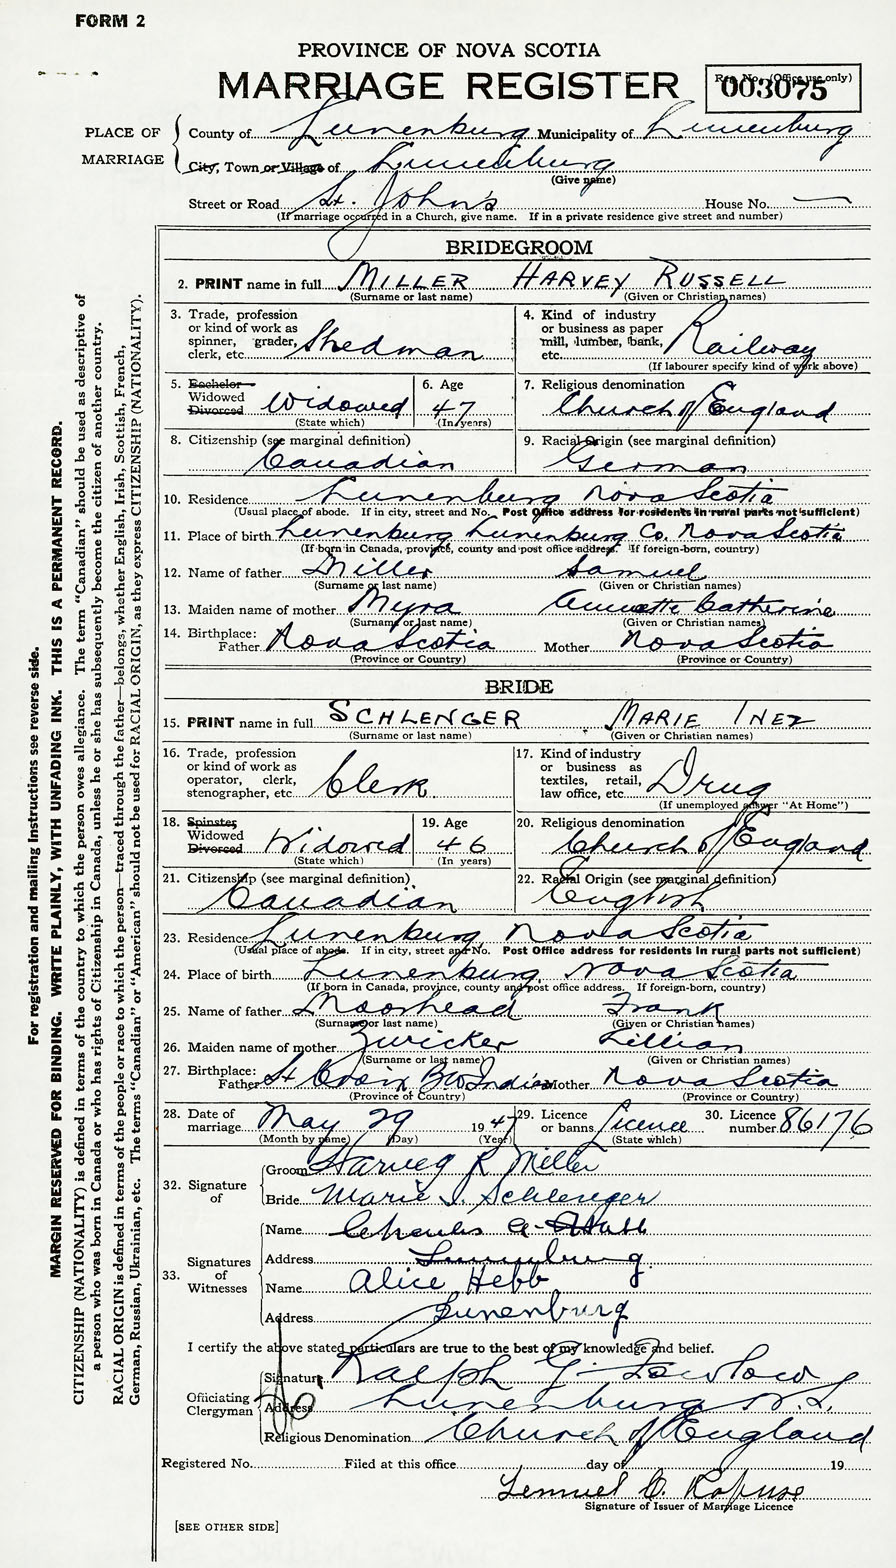 FORM 2
PROVINCE OF NOVA SCOTIA
MARRIAGE REGISTER
Reg. No. (Office use only)
003075
PLACE OF MARRIAGE
County of Lunenburg Municipality of Lunenburg
City, Town or Village of Lunenburg
(Give name)
Street or Road St. John's House No. —
(If marriage occurred in a Church, give name. If in a private residence give street and number)
BRIDEGROOM
2. PRINT name in full MILLER HARVEY RUSSELL
(Surname or last name) (Given or Christian names)
3. Trade, profession or kind of work as spinner, grader, clerk, etc. Shedman
4. Kind of industry or business as paper mill, lumber, bank, etc. Railway
(If labourer specify kind of work above)
5. Bachelor Widowed Divorced Widowed
(State which)
6. Age 47
(In years)
7. Religious denomination
Church of England
8. Citizenship (see marginal definition)
Canadian
9. Racial Origin (see marginal definition)
German
10. Residence Lunenburg Nova Scotia
(Usual place of abode. If in city, street and No. Post Office address for residents in rural parts not sufficient)
11. Place of birth Lunenburg Lunenburg Co. Nova Scotia
(If born in Canada, province, county and post office address. If foreign-born, country)
12. Name of father Miller Samuel
(Surname or last name) (Given or Christian names)
13. Maiden name of mother Myra Annette Catherine
(Surname or last name) (Given or Christian names)
14. Birthplace:
Father Nova Scotia Mother Nova Scotia
(Province or Country) (Province or Country)
BRIDE
15. PRINT name in full SCHLENGER MARIE INEZ
(Surname or last name) (Given or Christian names)
16. Trade, profession or kind of work as operator, clerk, stenographer, etc. Clerk
17. Kind of industry or business as textiles, retail, law office, etc. Drug
(If unemployed answer "At Home")
18. Spinster Widowed Divorced Widowed
(State which)
19. Age 46
(In years)
20. Religious denomination
Church of England
21. Citizenship (see marginal definition)
Canadian
22. Racial Origin (see marginal definition)
English
23. Residence Lunenburg Nova Scotia
(Usual place of abode. If in city, street and No. Post Office address for residents in rural parts not sufficient)
24. Place of birth Lunenburg, Nova Scotia
(If born in Canada, province, county and post office address. If foreign-born, country)
25. Name of father Moorhead Frank
(Surname or last name) (Given or Christian names)
26. Maiden name of mother Zwicker Lillian
(Surname or last name) (Given or Christian names)
27. Birthplace:
Father St Croix B W Indies Mother Nova Scotia
(Province or Country) (Province or Country)
28. Date of marriage May 29 1947
(Month by name) (Day) (Year)
29. Licence or banns Licence
(State which)
30. Licence number 86176
32. Signature of
Groom Harvey R Miller
Bride Marie I. Schlenger
33. Signatures of Witnesses
Name Charles A.
Address Lunenburg
Name Alice Hebb
Address Lunenburg
I certify the above stated particulars are true to the best of my knowledge and belief.
Officiating Clergyman
Signature Ralph G. Fowlow
Address Lunenburg N.S.
Religious Denomination Church of England
Registered No. Filed at this office day of 19
Lemuel
Signature of Issuer of Marriage Licence
[SEE OTHER SIDE]
For registration and mailing instructions see reverse side.
MARGIN RESERVED FOR BINDING. WRITE PLAINLY, WITH UNFADING INK. THIS IS A PERMANENT RECORD.
CITIZENSHIP (NATIONALITY) is defined in terms of the country to which the person owes allegiance. The term "Canadian" should be used as descriptive of
a person who was born in Canada or who has rights of Citizenship in Canada, unless he or she has subsequently become the citizen of another country.
RACIAL ORIGIN is defined in terms of the people or race to which the person—traced through the father—belongs, whether English, Irish, Scottish, French,
German, Russian, Ukrainian, etc. The terms "Canadian" or "American" should not be used for RACIAL ORIGIN, as they express CITIZENSHIP (NATIONALITY).